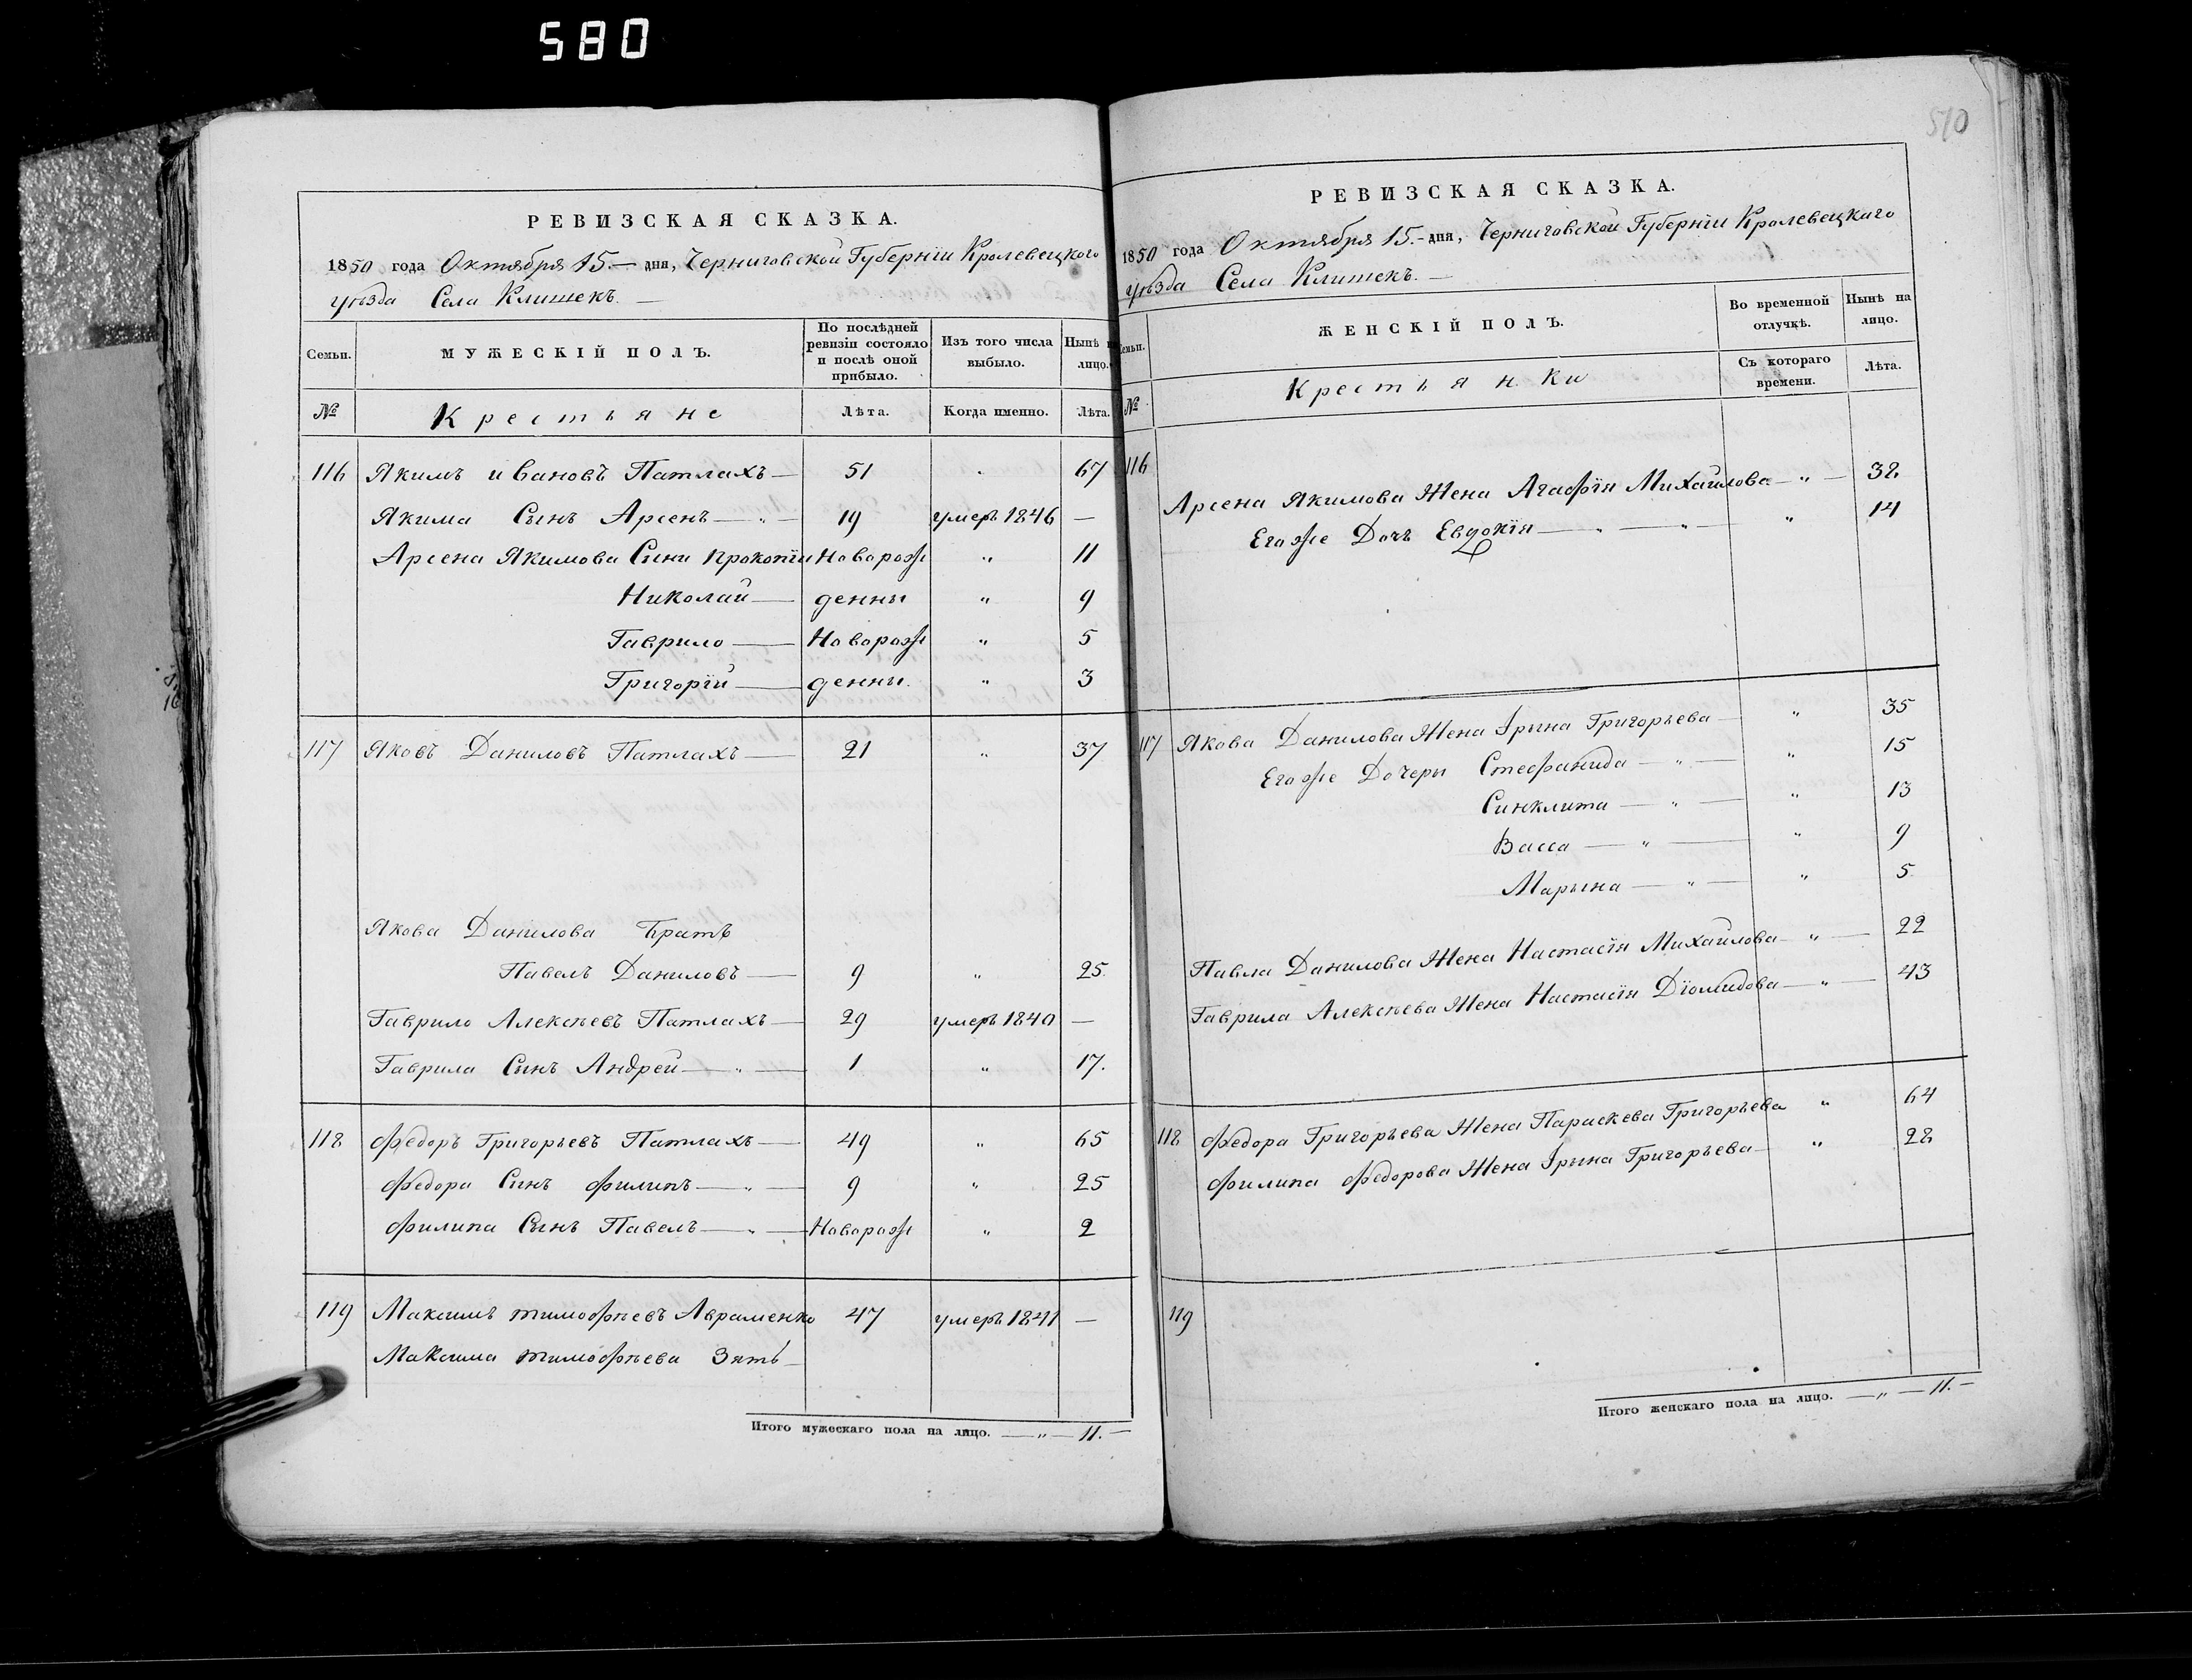 580
510
РЕВИЗСКАЯ СКАЗКА.
1850 года Октября 15.— дня, Черниговской Губернїи Кролевецкого
уѣзда Села Клишекъ.—
Семьи.
МУЖЕСКІЙ ПОЛЪ.
По послѣдней ревизіи состояло и послѣ оной прибыло.
Изъ того числа выбыло.
Нынѣ на лицо.
№
Крестьяне
Лѣта.
Когда именно.
Лѣта.
116 Якимъ ивановъ Патлахъ— 51 „ 67
Якима Сынъ Арсенъ— „ — 19 умеръ 1846 —
Арсена Якимова Сини Прокопїи Новорож „ 11
Николай— денны „ 9
Гаврило— Новорож „ 5
Григорїй— денны. „ 3
117 Яковъ Даниловъ Патлахъ— 21 „ 37
Якова Данилова Братъ
Павелъ Даниловъ— 9 „ 25.
Гаврило Алексѣевъ Патлахъ— 29 умеръ 1840 —
Гаврила Сынъ Андрей— „ — 1 „ 17.
118 Федоръ Григорьевъ Патлахъ— 49 „ 65
Федора Синъ Филипъ— „ — 9 „ 25
Филипа Сынъ Павелъ— „ — Новорож „ 2
119 Максимъ тимофѣевъ Авраменко 47 умеръ 1841 —
Максима тимофѣева Зять—
Итого мужескаго пола на лицо. — „ — 11.—
РЕВИЗСКАЯ СКАЗКА.
1850 года Октября 15.- дня, Черниговской Губернїи Кролевецкаго
уѣзда Села Клишекъ.—
Семьи.
ЖЕНСКІЙ ПОЛЪ.
Во временной отлучкѣ.
Нынѣ на лицо.
Съ котораго времени.
Лѣта.
№
Крестьянки
116
Арсена Якимова Жена Агафїя Михайлова— „ — 32
Егоже Дочь Евдокїя— „ — „ — „ 14
117 Якова Данилова Жена Ірына Григорьева— „ 35
Егоже Дочеры Стефанида— „ — „ 15
Синклита— „ — „ 13
Васса— „ — „ 9
Марына— „ — „ 5
Павла Данилова Жена Настасїя Михайлова— „ — 22
Гаврила Алексѣева Жена Настасїя Дїомидова— „ — 43
118 Федора Григорьева Жена Параскева Григорьева „ 64
Филипа Федорова Жена Ірына Григорьева— „ 22
119
Итого женскаго пола на лицо. — „ — 11.—